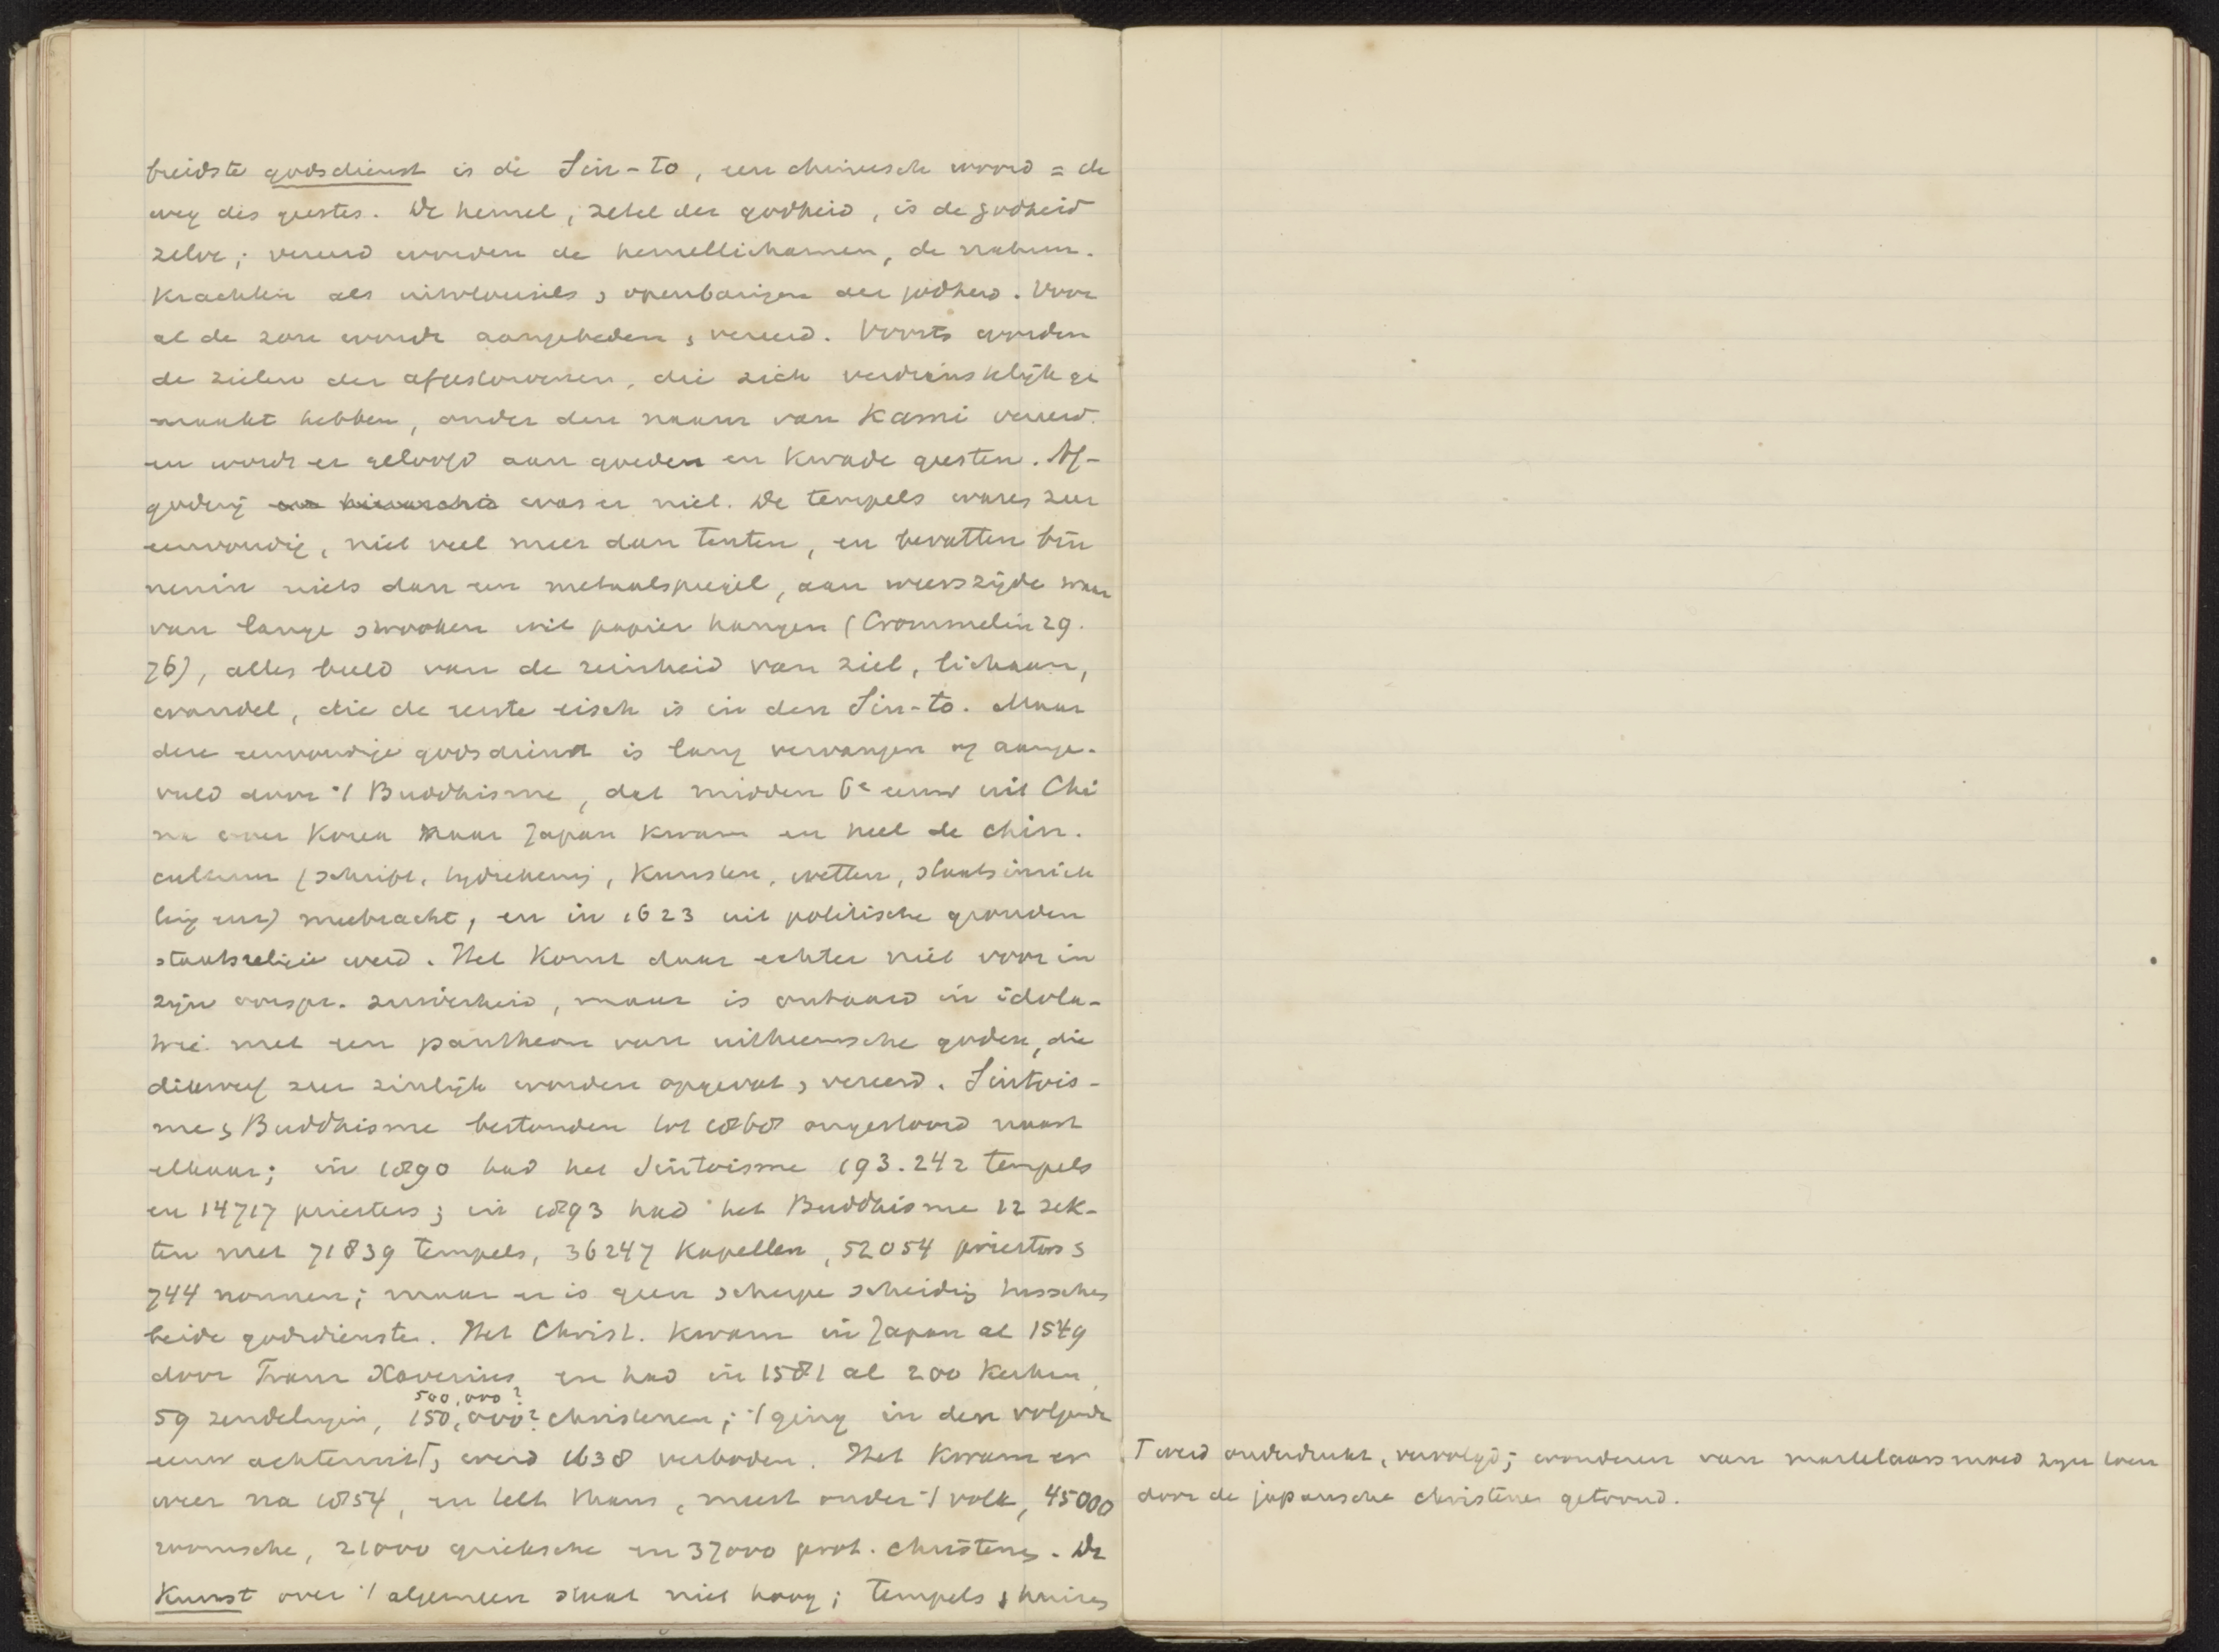 breidste godsdienst is de Sin-to, een chineesch woord = de
weg des geestes. De hemel, zetel der godheid, is de godheid
zelve; vereerd worden de hemellichamen, de natuur-
krachten als uitvloeisels & openbaringen der godheid. Voor
al de zon wordt aangebeden & vereerd. Voorts worden
de zielen der afgestorvenen, die zich verdienstelijk ge
maakt hebben, onder den naam van Kami vereerd.
en wordt er geloofd aan goeden en kwade geesten. Af-
goderij en hierarchie was er niet. De tempels waren zeer
eenvoudig, niet veel meer dan tenten, en bevatten bin
nenin niets dan een metaalspiegel, aan weerszijde waar
van lange strooken wit papier hangen (Crommelin 29.
76), alles beeld van de reinheid van ziel, lichaam,
wandel, die de eerste eisch is in den Sin-to. Maar
deze eenvoudige godsdienst is lang vervangen of aange-
vuld door 't Buddhisme, dat midden 6e eeuw uit Chi
na over Korea naar Japan kwam en heel de chin.
cultuur (schrift, tijdrekening, kunsten, wetten, staatsinrich
ting enz) meebracht, en in 1623 uit politische gronden
staatsreligie werd. Het komt daar echter niet voor in
zijn oorspr. zuiverheid, maar is ontaard in idola-
trie met een pantheon van uitheemsche goden, die
dikwerf zeer zinlijk worden opgevat & vereerd. Sintois-
me & Buddhisme bestonden tot 1868 ongestoord naast
elkaar; in 1890 had het Sintoisme 193.242 tempels
en 14717 priesters; in 1893 had het Buddhisme 12 sek-
ten met 71839 tempels, 36247 kapellen, 52054 priesters &
744 nonnen; maar er is geen scherpe scheiding tusschen
beide godsdiensten. Het Christ. kwam in Japan al 1549
door Frans Xaverius en had in 1581 al 200 kerken,
500,000?
59 zendelingen, 150,000? christenen; 't ging in den volgende
eeuw achteruit⌈, werd 1638 verboden. Het kwam er
weer na 1854, en telt thans, meest onder 't volk, 45000
roomsche, 21000 grieksche en 37000 prot. christenen. De
Kunst over 't algemeen staat niet hoog; tempels & huizen
⌈ werd onderdrukt, vervolgd; wonderen van martelaarsmoed zijn toen
door de japansche christenen getoond.